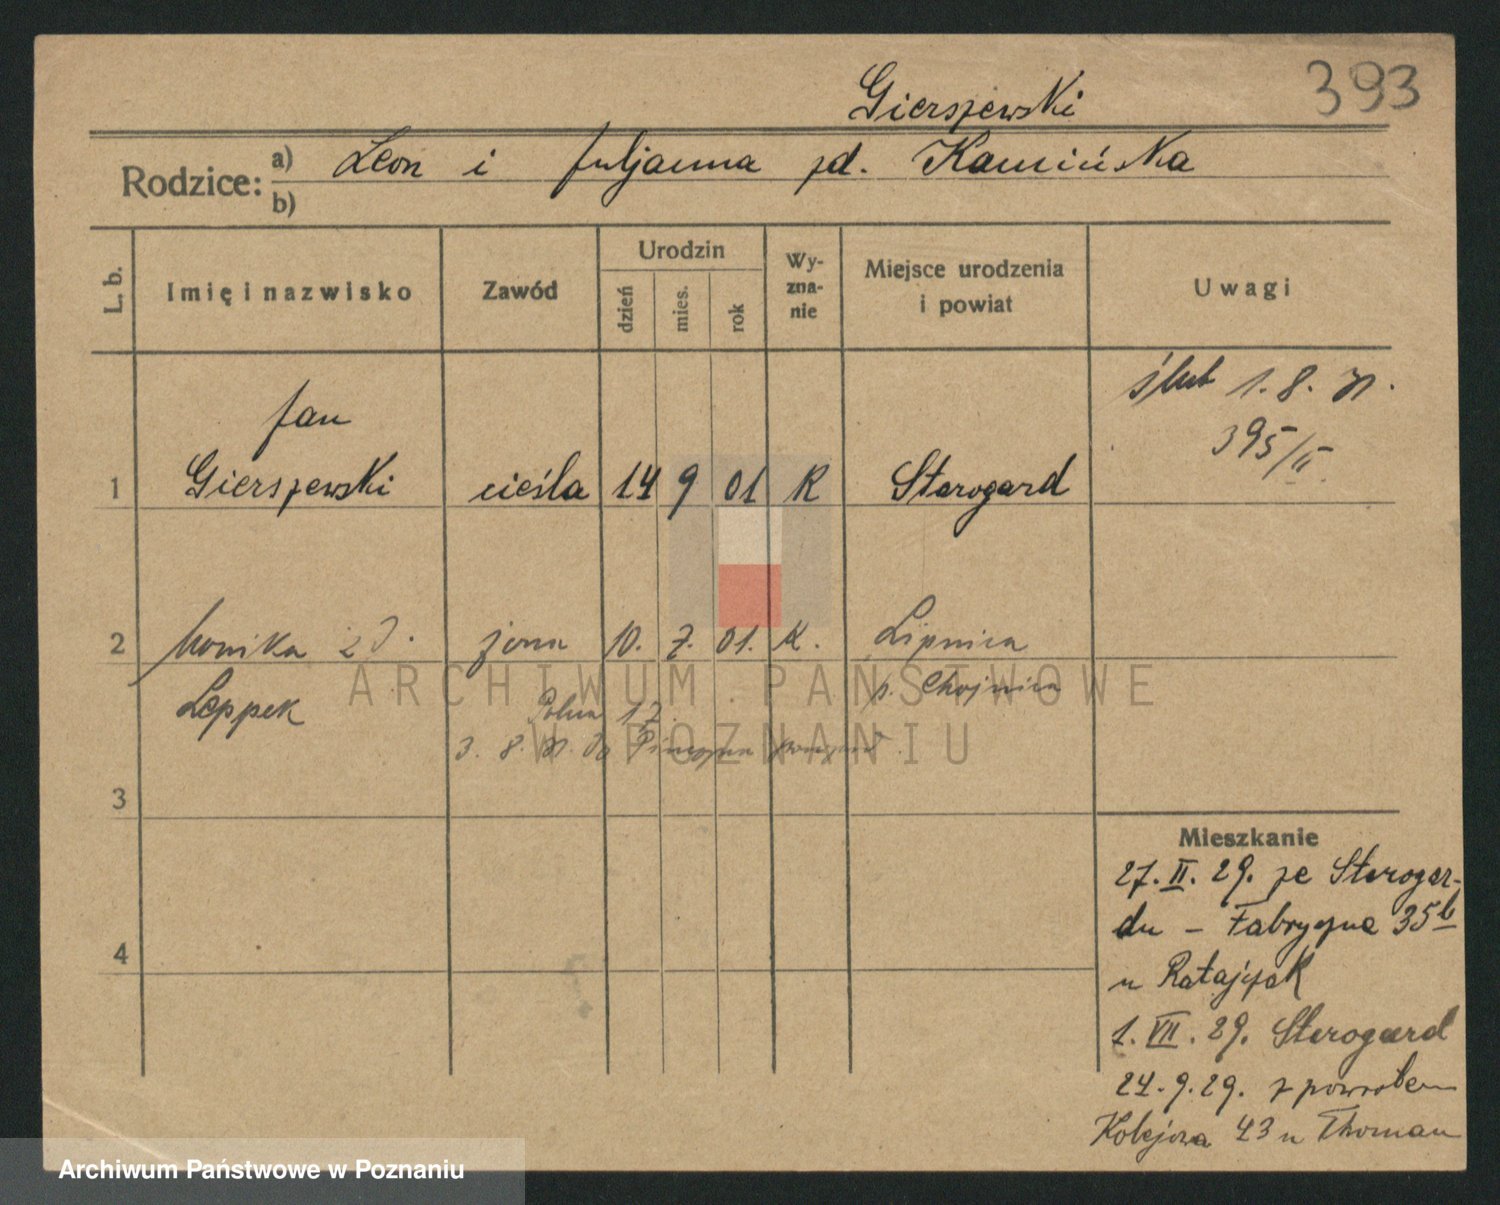 393
Gierszewski
Rodzice: a) Leon i Juljanna zd. Kamińska
b)
L. b.
Imię i nazwisko
Zawód
Urodzin
dzień
mies.
rok
Wy-
zna-
nie
Miejsce urodzenia
i powiat
Uwagi
ślub 1. 8. 31.
395/II
Jan
1 Gierszewski cieśla 14 9 01 K Starogard
2 Monika zd. żona 10. 7. 01. K. Lipnica
Leppek
p. Chojnice
Polna 17.
3. 8. 31. do
3
4
Mieszkanie
27. II. 29. ze Starogar-
du - Fabryczna 35b
u Ratajczak
1. VII. 29. Starogard
24. 9. 29. z powrotem
Kolejowa 43 u Thoman
ARCHIWUM PAŃSTWOWE
W POZNANIU
Archiwum Państwowe w Poznaniu